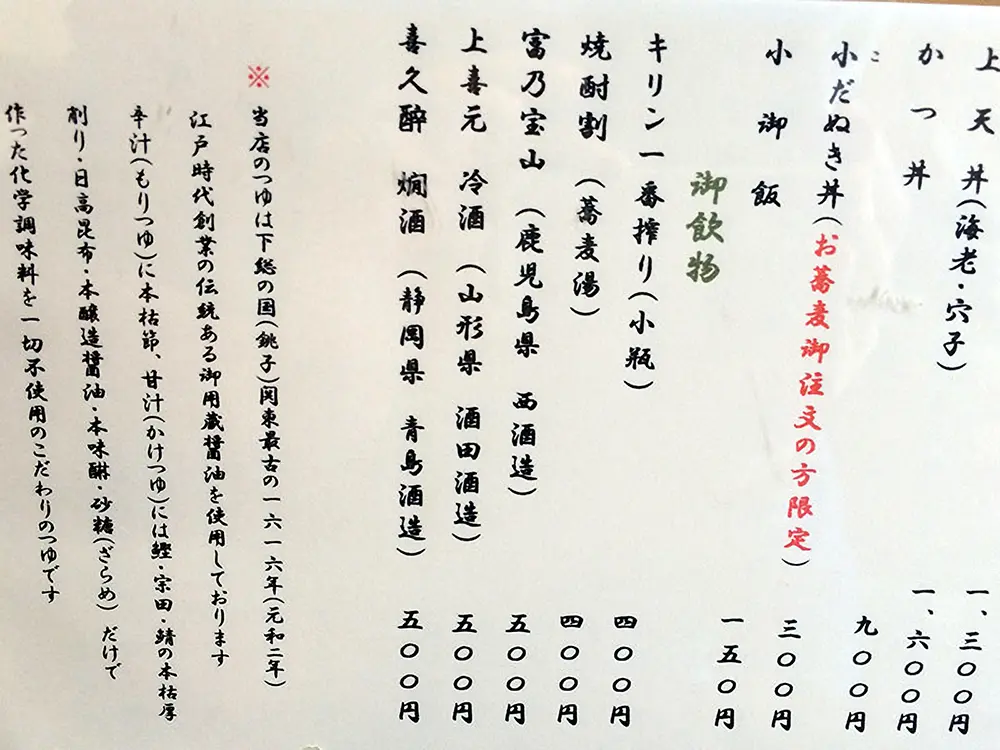 一、三〇〇円
上天丼(海老・穴子) 一、六〇〇円
かつ丼 九〇〇円
こ
小だぬき丼(お蕎麦御注文の方限定) 三〇〇円
小御飯 一五〇円
御飲物
キリン一番搾り(小瓶) 四〇〇円
焼酎割(蕎麦湯) 四〇〇円
富乃宝山(鹿児島県 西酒造) 五〇〇円
上喜元 冷酒(山形県 酒田酒造) 五〇〇円
喜久酔 燗酒(静岡県 青島酒造) 五〇〇円
※ 当店のつゆは下総の国(銚子)関東最古の一六一六年(元和二年)
江戸時代創業の伝統ある御用蔵醤油を使用しております
辛汁(もりつゆ)に本枯節、甘汁(かけつゆ)には鰹・宗田・鯖の本枯厚
削り・日高昆布・本醸造醤油・本味醂・砂糖(ざらめ)だけで
作った化学調味料を一切不使用のこだわりのつゆです